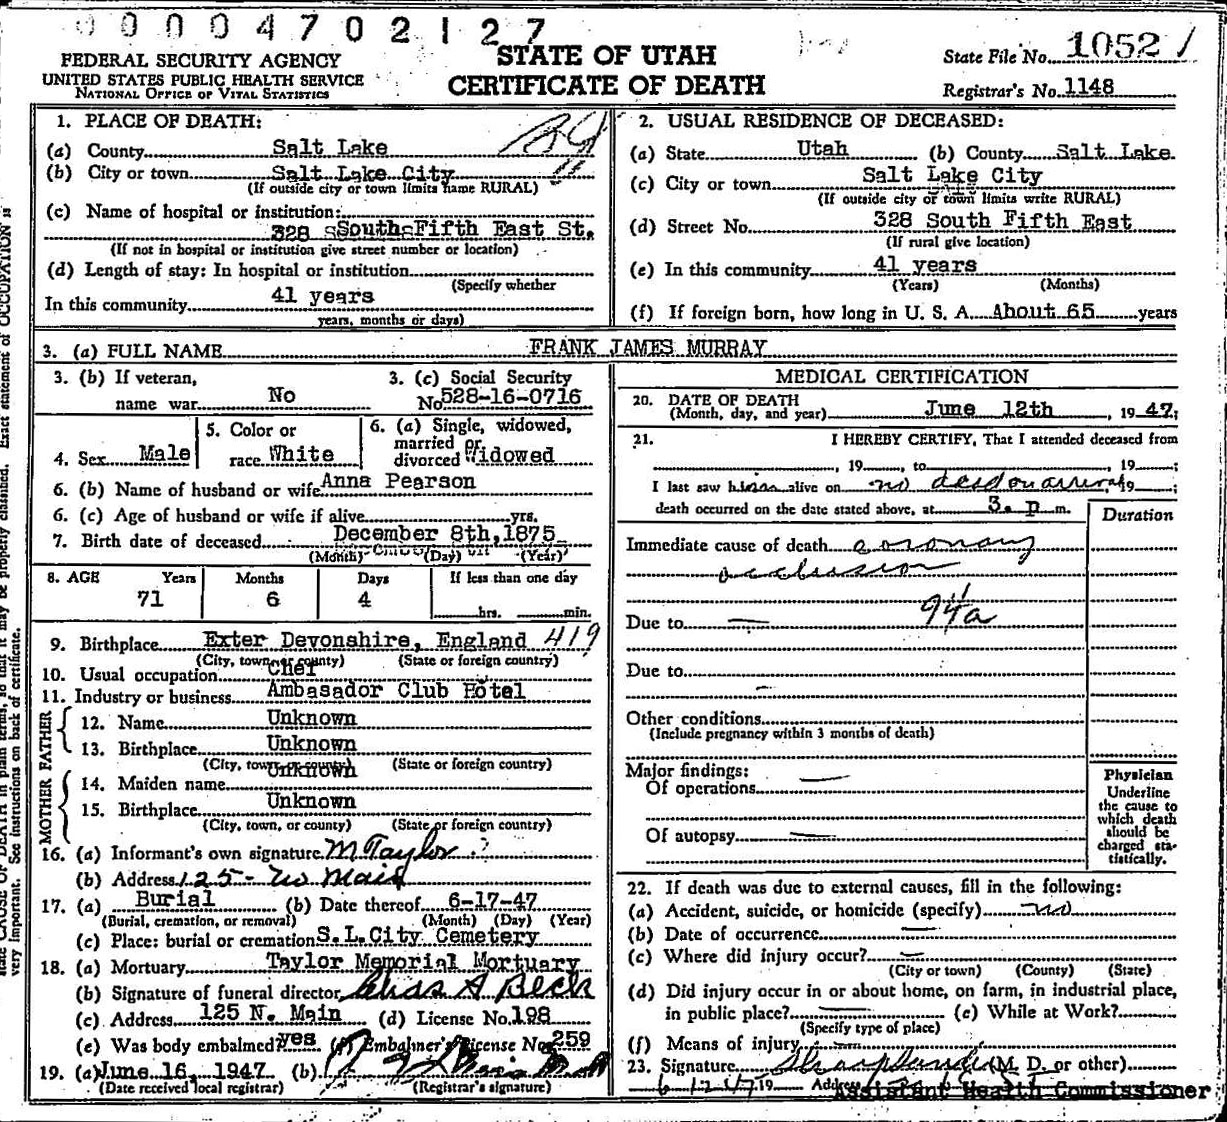 00004702127
FEDERAL SECURITY AGENCY
UNITED STATES PUBLIC HEALTH SERVICE
NATIONAL OFFICE OF VITAL STATISTICS
STATE OF UTAH
CERTIFICATE OF DEATH
State File No. 1052
Registrar's No. 1148
1. PLACE OF DEATH:
(a) County Salt Lake
(b) City or town Salt Lake City
(If outside city or town limits name RURAL)
(c) Name of hospital or institution:
328 South Fifth East St.
(If not in hospital or institution give street number or location)
(d) Length of stay: In hospital or institution
(Specify whether
In this community 41 years
years, months or days)
2. USUAL RESIDENCE OF DECEASED:
(a) State Utah (b) County Salt Lake
(c) City or town Salt Lake City
(If outside city or town limits write RURAL)
(d) Street No. 328 South Fifth East
(If rural give location)
(e) In this community 41 years
(Years) (Months)
(f) If foreign born, how long in U. S. A. About 65 years
3. (a) FULL NAME FRANK JAMES MURRAY
3. (b) If veteran,
name war No
3. (c) Social Security
No. 528-16-0716
4. Sex Male
5. Color or
race White
6. (a) Single, widowed,
married or
divorced Widowed
6. (b) Name of husband or wife Anna Pearson
6. (c) Age of husband or wife if alive yrs.
7. Birth date of deceased December 8th, 1875
(Month) (Day) (Year)
8. AGE Years Months Days If less than one day
71 6 4 hrs. min.
9. Birthplace Exter Devonshire, England 419
(City, town or county) (State or foreign country)
10. Usual occupation Chef
11. Industry or business Ambasador Club Hotel
FATHER
12. Name Unknown
13. Birthplace Unknown
(City, town, or county) (State or foreign country)
MOTHER
14. Maiden name Unknown
15. Birthplace Unknown
(City, town, or county) (State or foreign country)
16. (a) Informant's own signature M Taylor
(b) Address 125 - No Main
17. (a) Burial (b) Date thereof 6-17-47
(Burial, cremation, or removal) (Month) (Day) (Year)
(c) Place: burial or cremation S.L.City Cemetery
18. (a) Mortuary Taylor Memorial Mortuary
(b) Signature of funeral director Chas A Beck
(c) Address 125 N. Main (d) License No. 198
(e) Was body embalmed? yes (f) Embalmer's License No. 259
19. (a) June 16, 1947 (b)
(Date received local registrar) (Registrar's signature)
MEDICAL CERTIFICATION
20. DATE OF DEATH
(Month, day, and year) June 12th, 1947;
21. I HEREBY CERTIFY, That I attended deceased from
, 19 , to , 19 ;
I last saw him alive on no dead on arrival, 19 ;
death occurred on the date stated above, at 3. p m.
Duration
Immediate cause of death coronary
occlusion
94a
Due to —
Due to
—
Other conditions
(Include pregnancy within 3 months of death)
Major findings:
Of operations —
Of autopsy —
Physician
Underline
the cause to
which death
should be
charged sta-
tistically.
22. If death was due to external causes, fill in the following:
(a) Accident, suicide, or homicide (specify) no
(b) Date of occurrence —
(c) Where did injury occur? —
(City or town) (County) (State)
(d) Did injury occur in or about home, on farm, in industrial place,
in public place? — (e) While at Work?
(Specify type of place)
(f) Means of injury —
23. Signature (M. D. or other)
6 12 47 19 Address
Assistant Health Commissioner
very important. See instructions on back of certificate.
Exact statement of OCCUPATION is